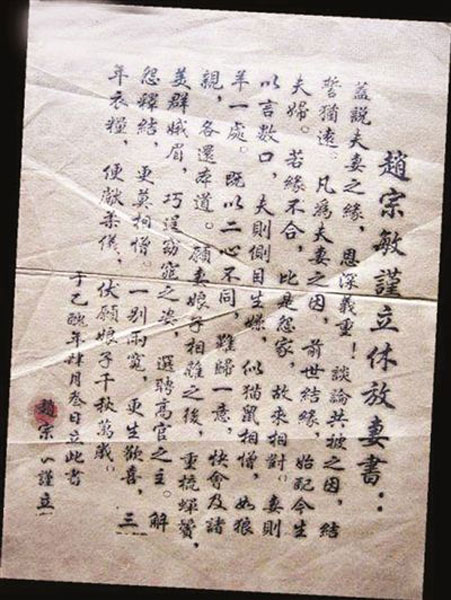 趙宗敏謹立休放妻書：
蓋說夫妻之緣，恩深義重！談論共被之因，結
誓猶遠。凡為夫妻之因，前世結緣，始配今生
夫婦。若緣不合，比是怨家，故來相對。妻則
以言數口，夫則側目生嫌，似猫鼠相憎，如狼
羊一處。既以二心不同，難歸一意，快會及諸
親，各還本道。願妻娘子相離之後，重梳蟬鬢，
美群娥眉，巧逞窈窕之姿，選聘高官之主。解
怨釋結，更莫相憎。一別兩寬，更生歡喜，三
年衣糧，便獻柔儀。伏願娘子千秋萬歲。
于乙醜年肆月叁日立此書
趙宗謹立